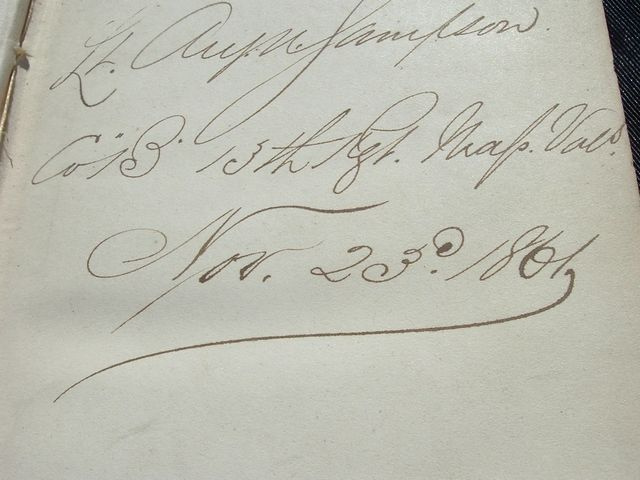 Lt. Aug. N. Sampson.
Co "B". 13th Rgt. Mass. Vols.
Nov. 23d. 1861,